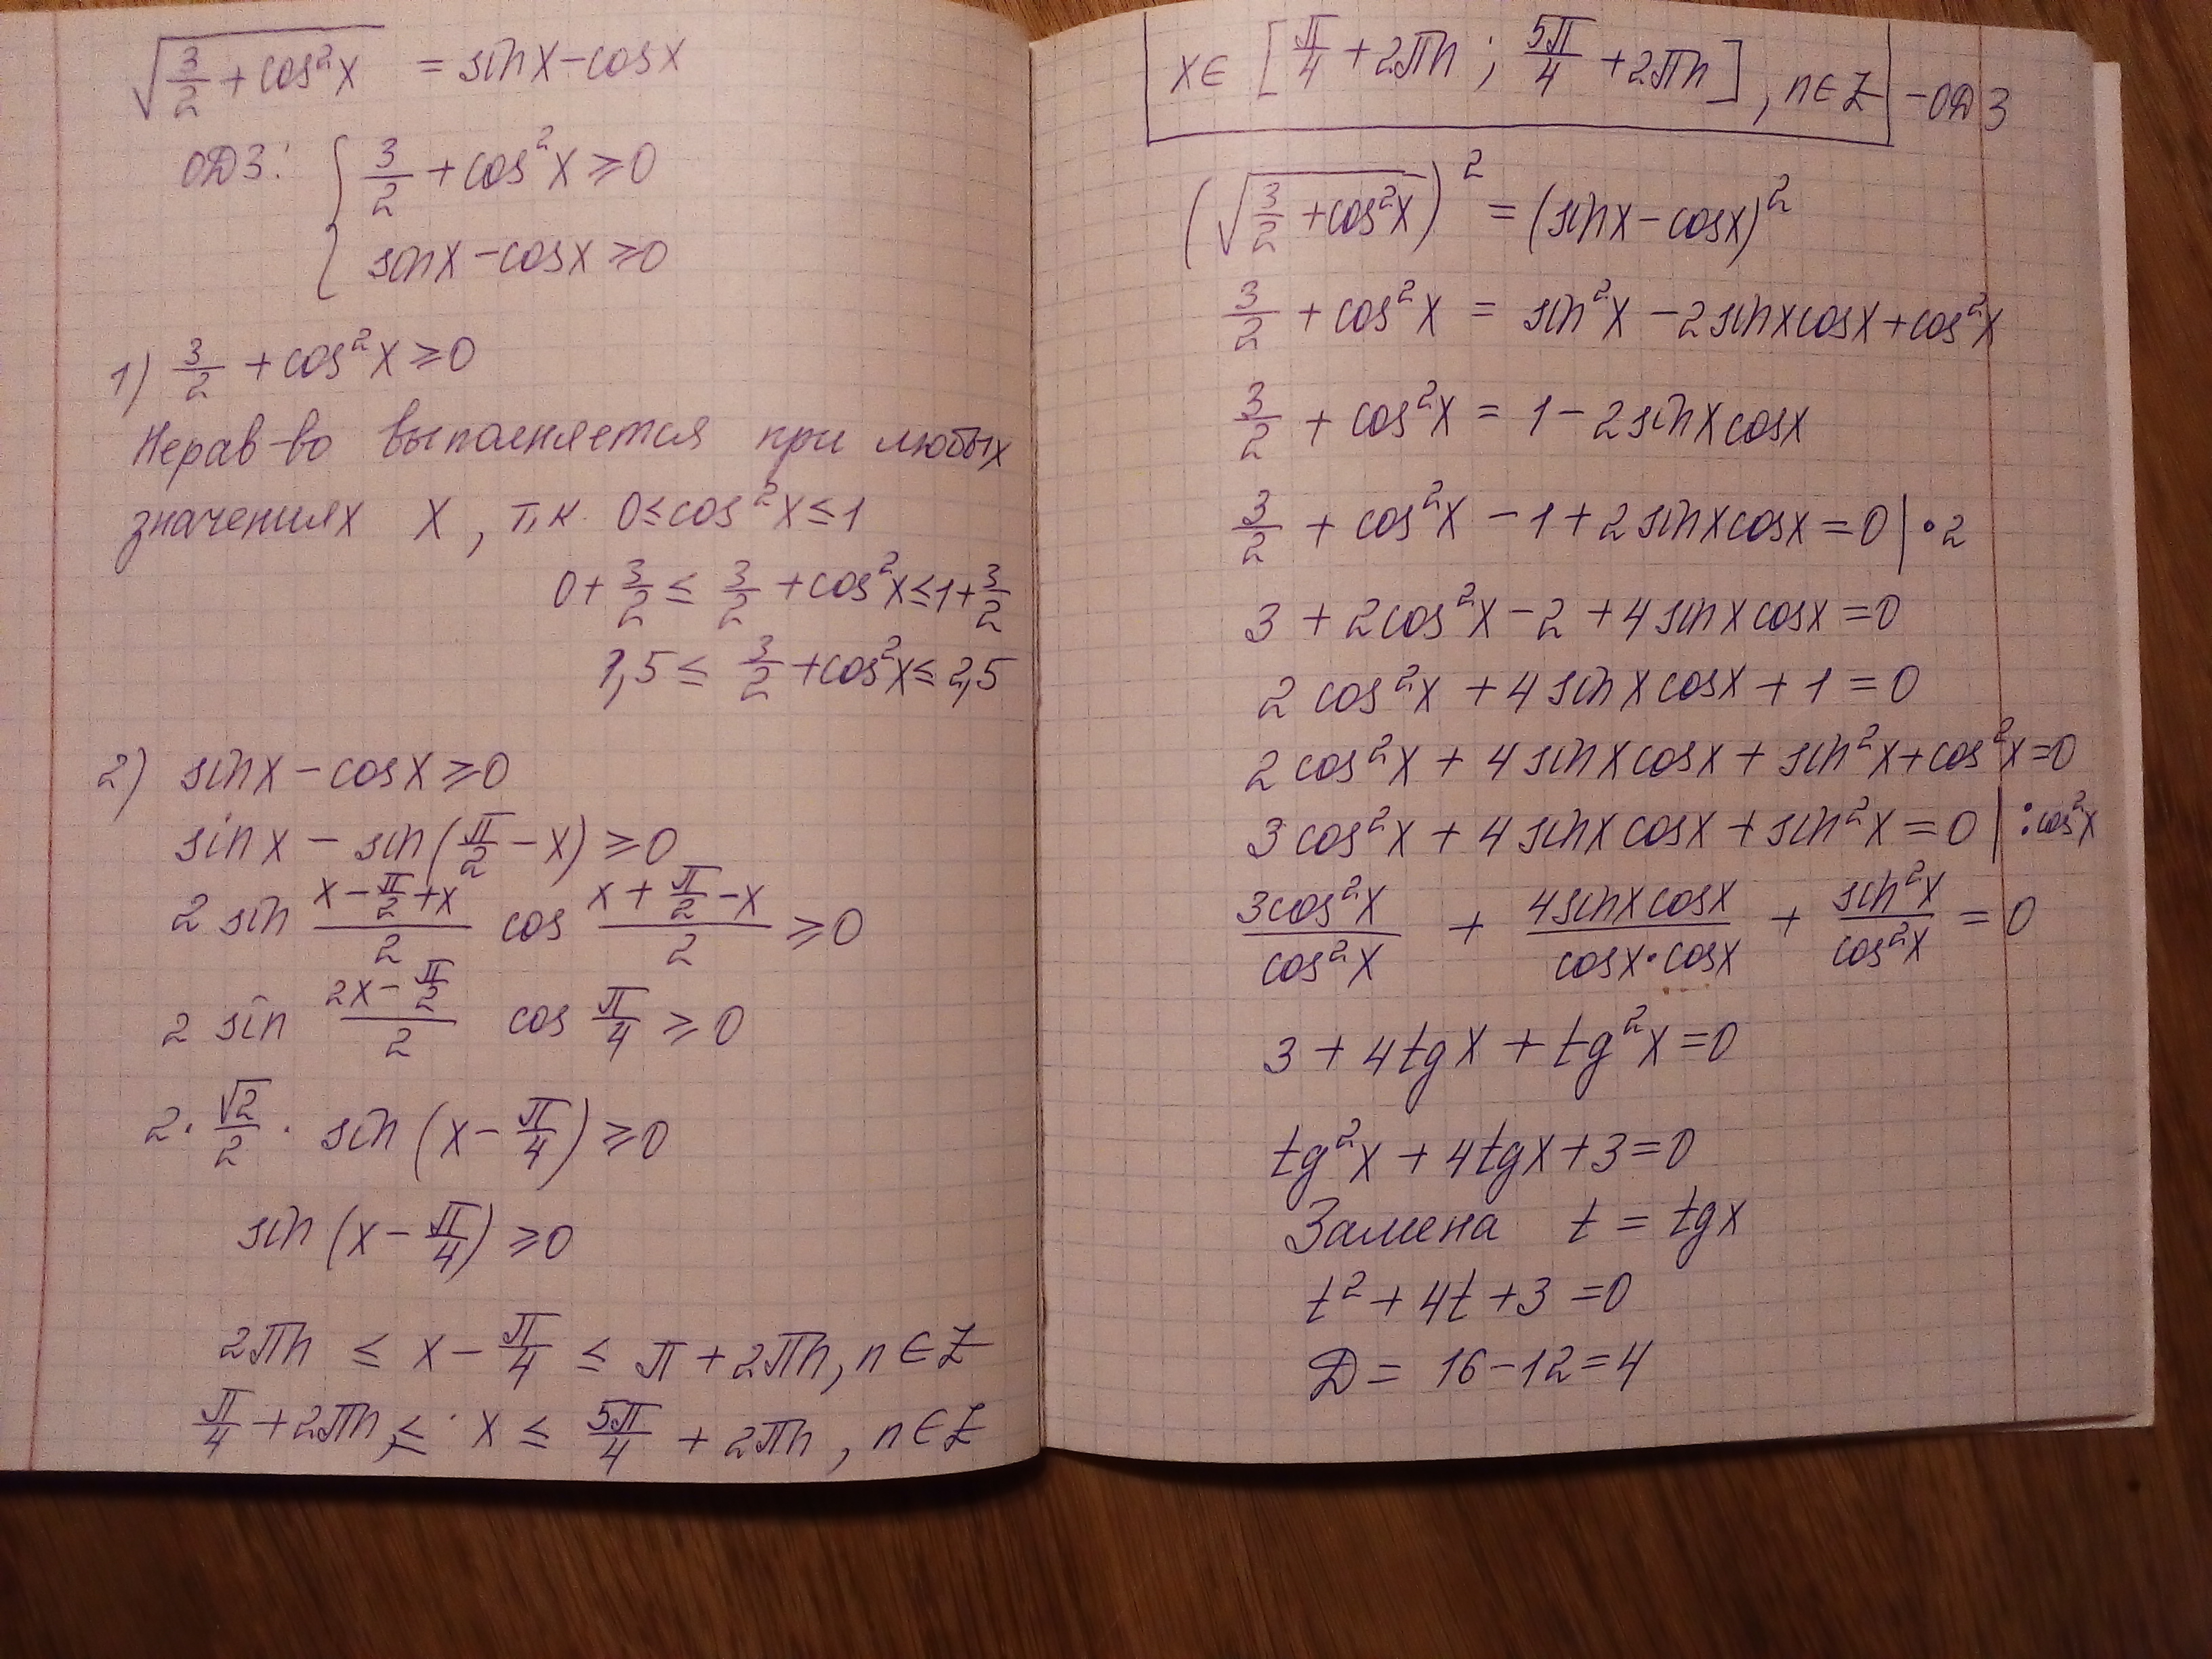 √(3/2 + cos²x) = sinx - cosx
ОДЗ: { 3/2 + cos²x ≥ 0
{ sinx - cosx ≥ 0
1) 3/2 + cos²x ≥ 0
Нерав-во выполняется при любых
значениях x, т.к. 0 ≤ cos²x ≤ 1
0 + 3/2 ≤ 3/2 + cos²x ≤ 1 + 3/2
1,5 ≤ 3/2 + cos²x ≤ 2,5
2) sinx - cosx ≥ 0
sinx - sin(π/2 - x) ≥ 0
2 sin (x - π/2 + x)/2 cos (x + π/2 - x)/2 ≥ 0
2 sin (2x - π/2)/2 cos π/4 ≥ 0
2 · √2/2 · sin(x - π/4) ≥ 0
sin(x - π/4) ≥ 0
2πn ≤ x - π/4 ≤ π + 2πn, n ∈ Z
π/4 + 2πn ≤ x ≤ 5π/4 + 2πn, n ∈ Z
x ∈ [π/4 + 2πn; 5π/4 + 2πn], n ∈ Z - ОДЗ
(√(3/2 + cos²x))² = (sinx - cosx)²
3/2 + cos²x = sin²x - 2sinxcosx + cos²x
3/2 + cos²x = 1 - 2sinxcosx
3/2 + cos²x - 1 + 2sinxcosx = 0 | · 2
3 + 2cos²x - 2 + 4sinxcosx = 0
2cos²x + 4sinxcosx + 1 = 0
2cos²x + 4sinxcosx + sin²x + cos²x = 0
3cos²x + 4sinxcosx + sin²x = 0 | : cos²x
3cos²x/cos²x + 4sinxcosx/cosx·cosx + sin²x/cos²x = 0
3 + 4tgx + tg²x = 0
tg²x + 4tgx + 3 = 0
Замена t = tgx
t² + 4t + 3 = 0
Д = 16 - 12 = 4